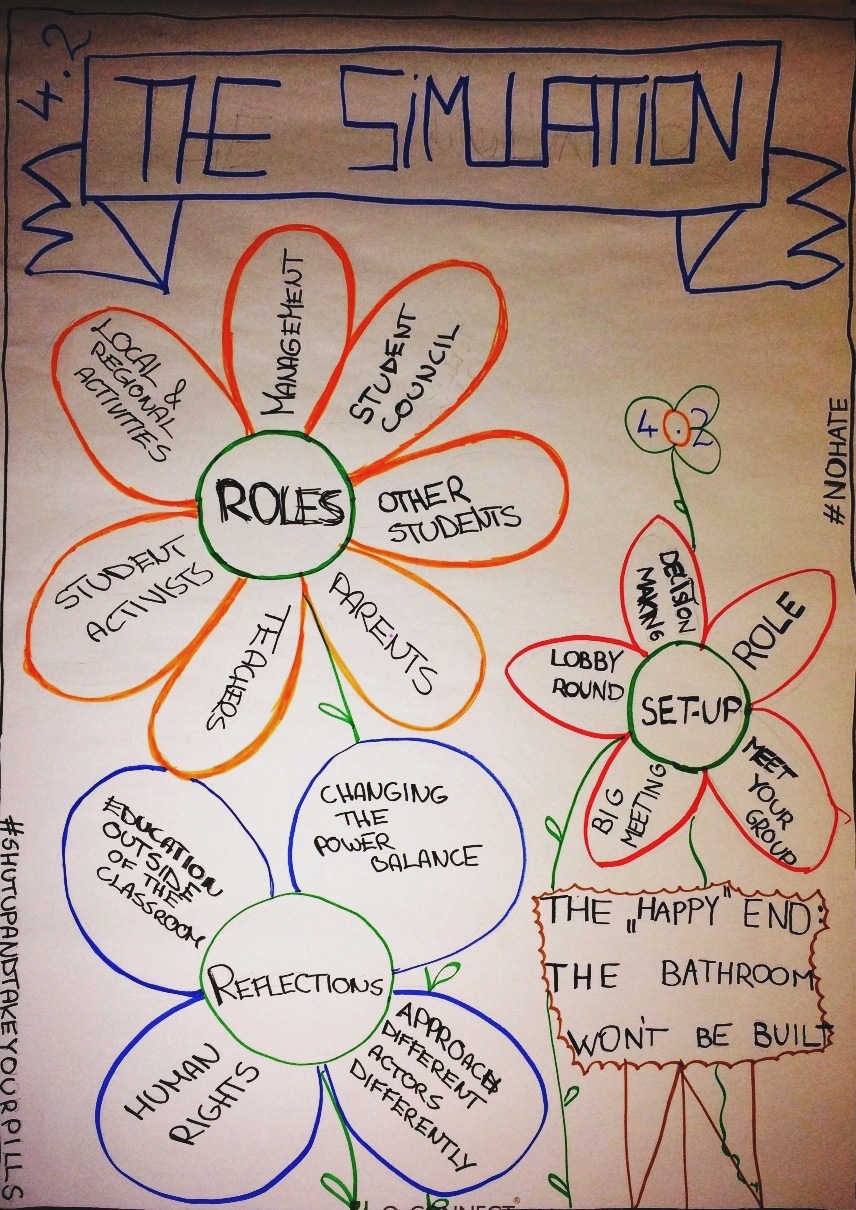 4.2
THE SiMULATION
MANAGEMENT
STUDENT
COUNCIL
LOCAL &
REGIONAL
ACTIVITIES
ROLES
OTHER
STUDENTS
STUDENT
ACTIVISTS
TEACHERS
PARENTS
#NOHATE
4.2
DECISION
MAKING
ROLE
LOBBY
ROUND
SET-UP
MEET
YOUR
GROUP
BIG
MEETING
CHANGING
THE
POWER
BALANCE
EDUCATION
OUTSIDE
OF THE
CLASSROOM
REFLECTIONS
HUMAN
RIGHTS
APPROACH
DIFFERENT
ACTORS
DIFFERENTLY
THE „HAPPY" END:
THE BATHROOM
WON'T BE BUILT
#SHUTUPANDTAKEYOURPILLS